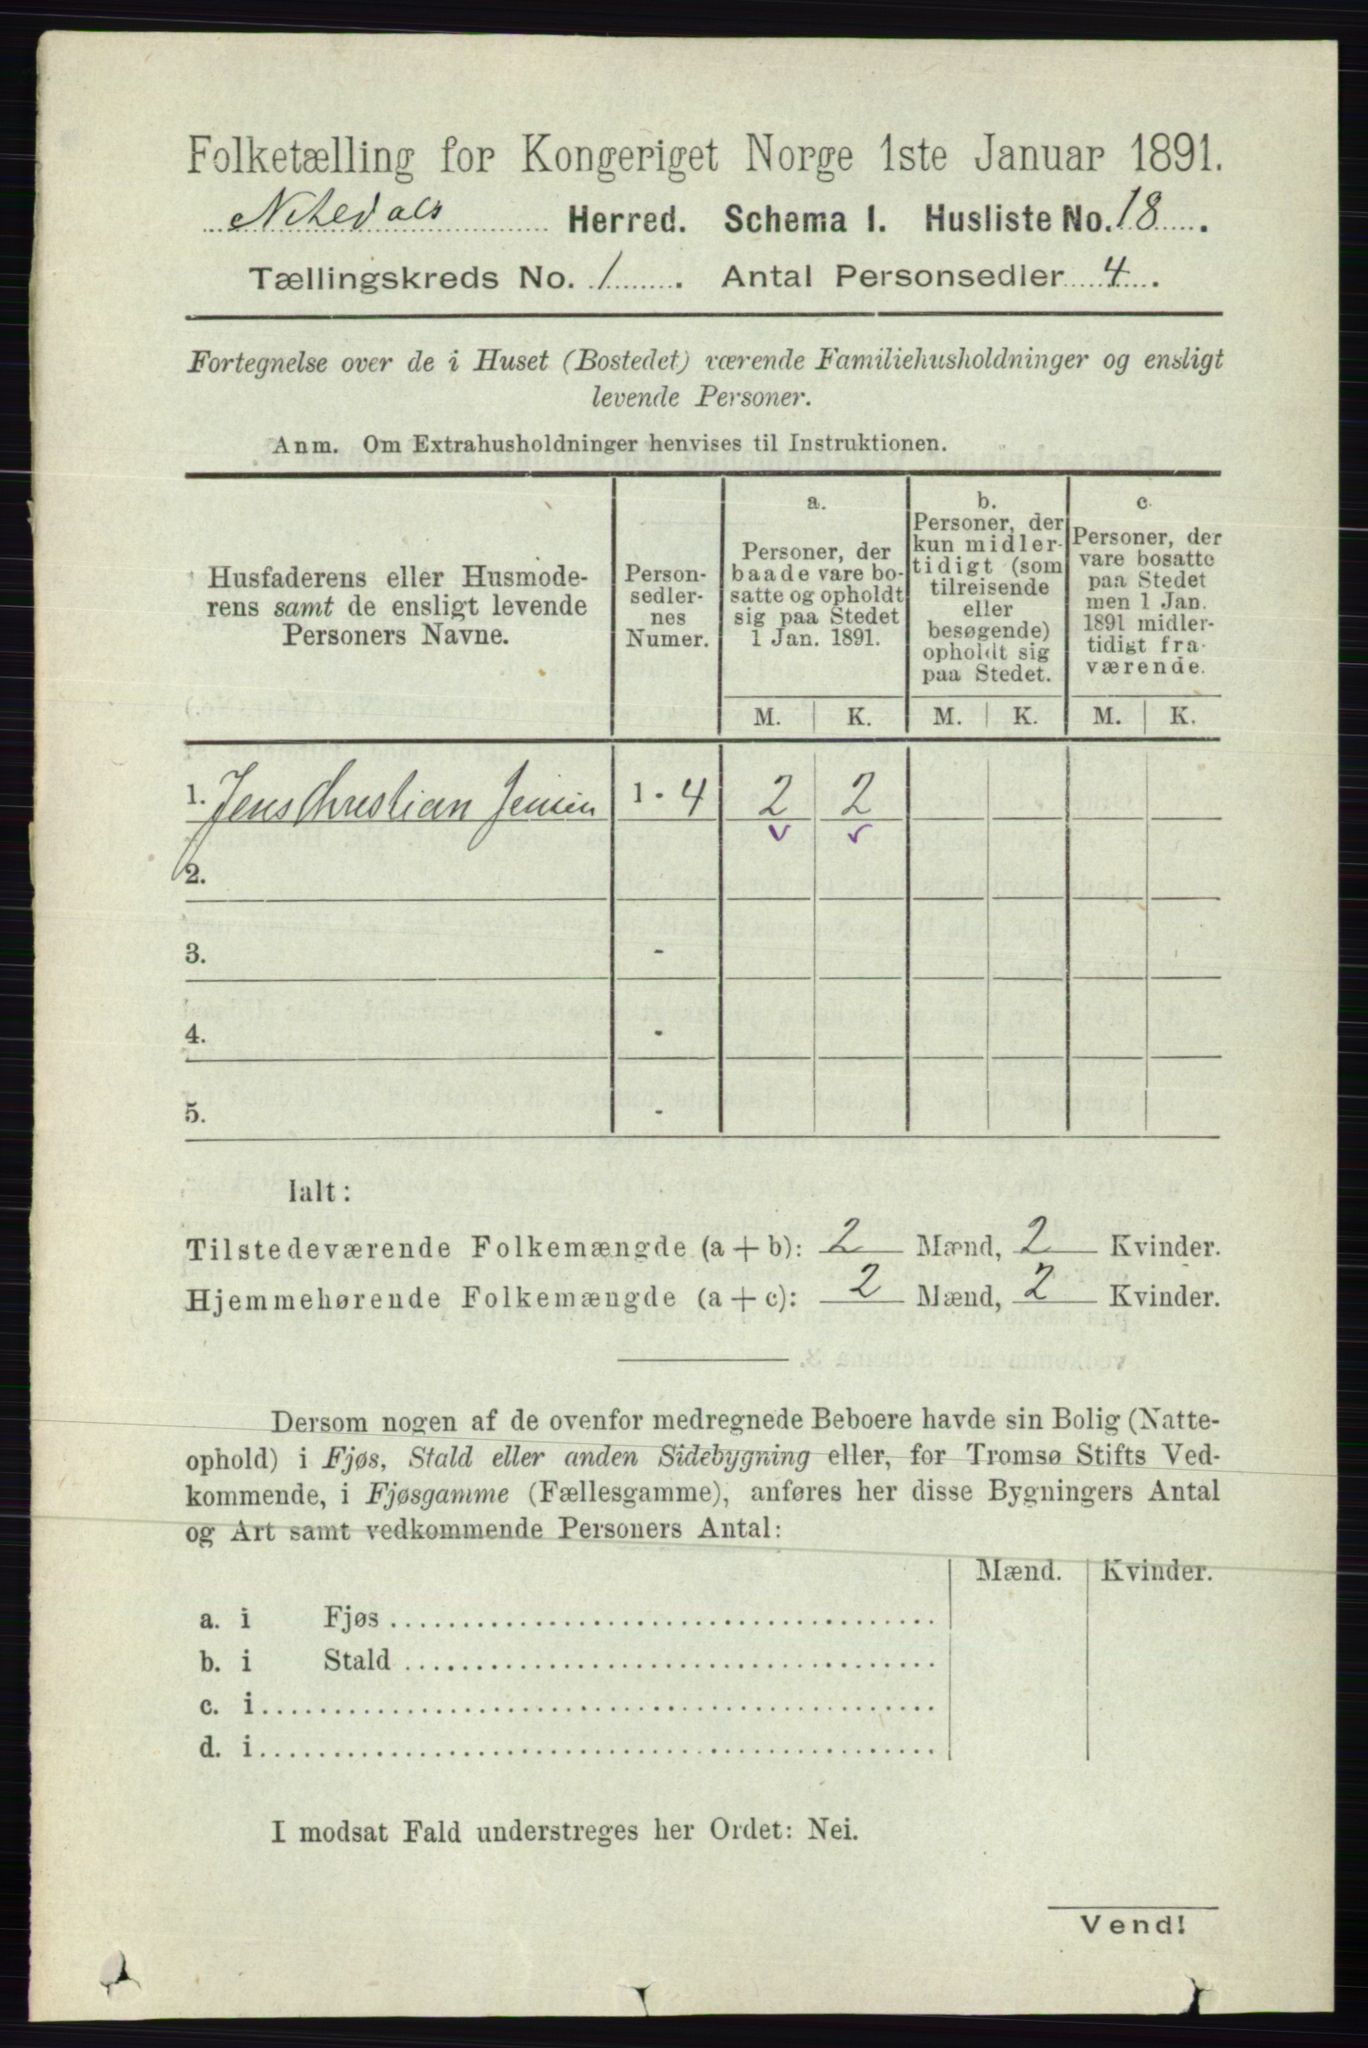 Folketælling for Kongeriget Norge 1ste Januar 1891.
Nitedals Herred. Schema I. Husliste No. 18.
Tællingskreds No. 1. Antal Personsedler 4.
Fortegnelse over de i Huset (Bostedet) værende Familiehusholdninger og ensligt
levende Personer.
Anm. Om Extrahusholdninger henvises til Instruktionen.
Husfaderens eller Husmode-
rens samt de ensligt levende
Personers Navne.
Person-
sedler-
nes
Numer.
a.
Personer, der
baade vare bo-
satte og opholdt
sig paa Stedet
1 Jan. 1891.
b.
Personer, der
kun midler-
tidigt (som
tilreisende
eller
besøgende)
opholdt sig
paa Stedet.
c.
Personer, der
vare bosatte
paa Stedet
men 1 Jan.
1891 midler-
tidigt fra-
værende.
M. K. M. K. M. K.
1. Jens Christian Jensen 1 - 4 2 2
2.
3. -
4. -
5. -
Ialt:
Tilstedeværende Folkemængde (a + b): 2 Mænd, 2 Kvinder.
Hjemmehørende Folkemængde (a + c): 2 Mænd, 2 Kvinder.
Dersom nogen af de ovenfor medregnede Beboere havde sin Bolig (Natte-
ophold) i Fjøs, Stald eller anden Sidebygning eller, for Tromsø Stifts Ved-
kommende, i Fjøsgamme (Fællesgamme), anføres her disse Bygningers Antal
og Art samt vedkommende Personers Antal:
Mænd. Kvinder.
a. i Fjøs
b. i Stald
c. i
d. i
I modsat Fald understreges her Ordet: Nei.
Vend!